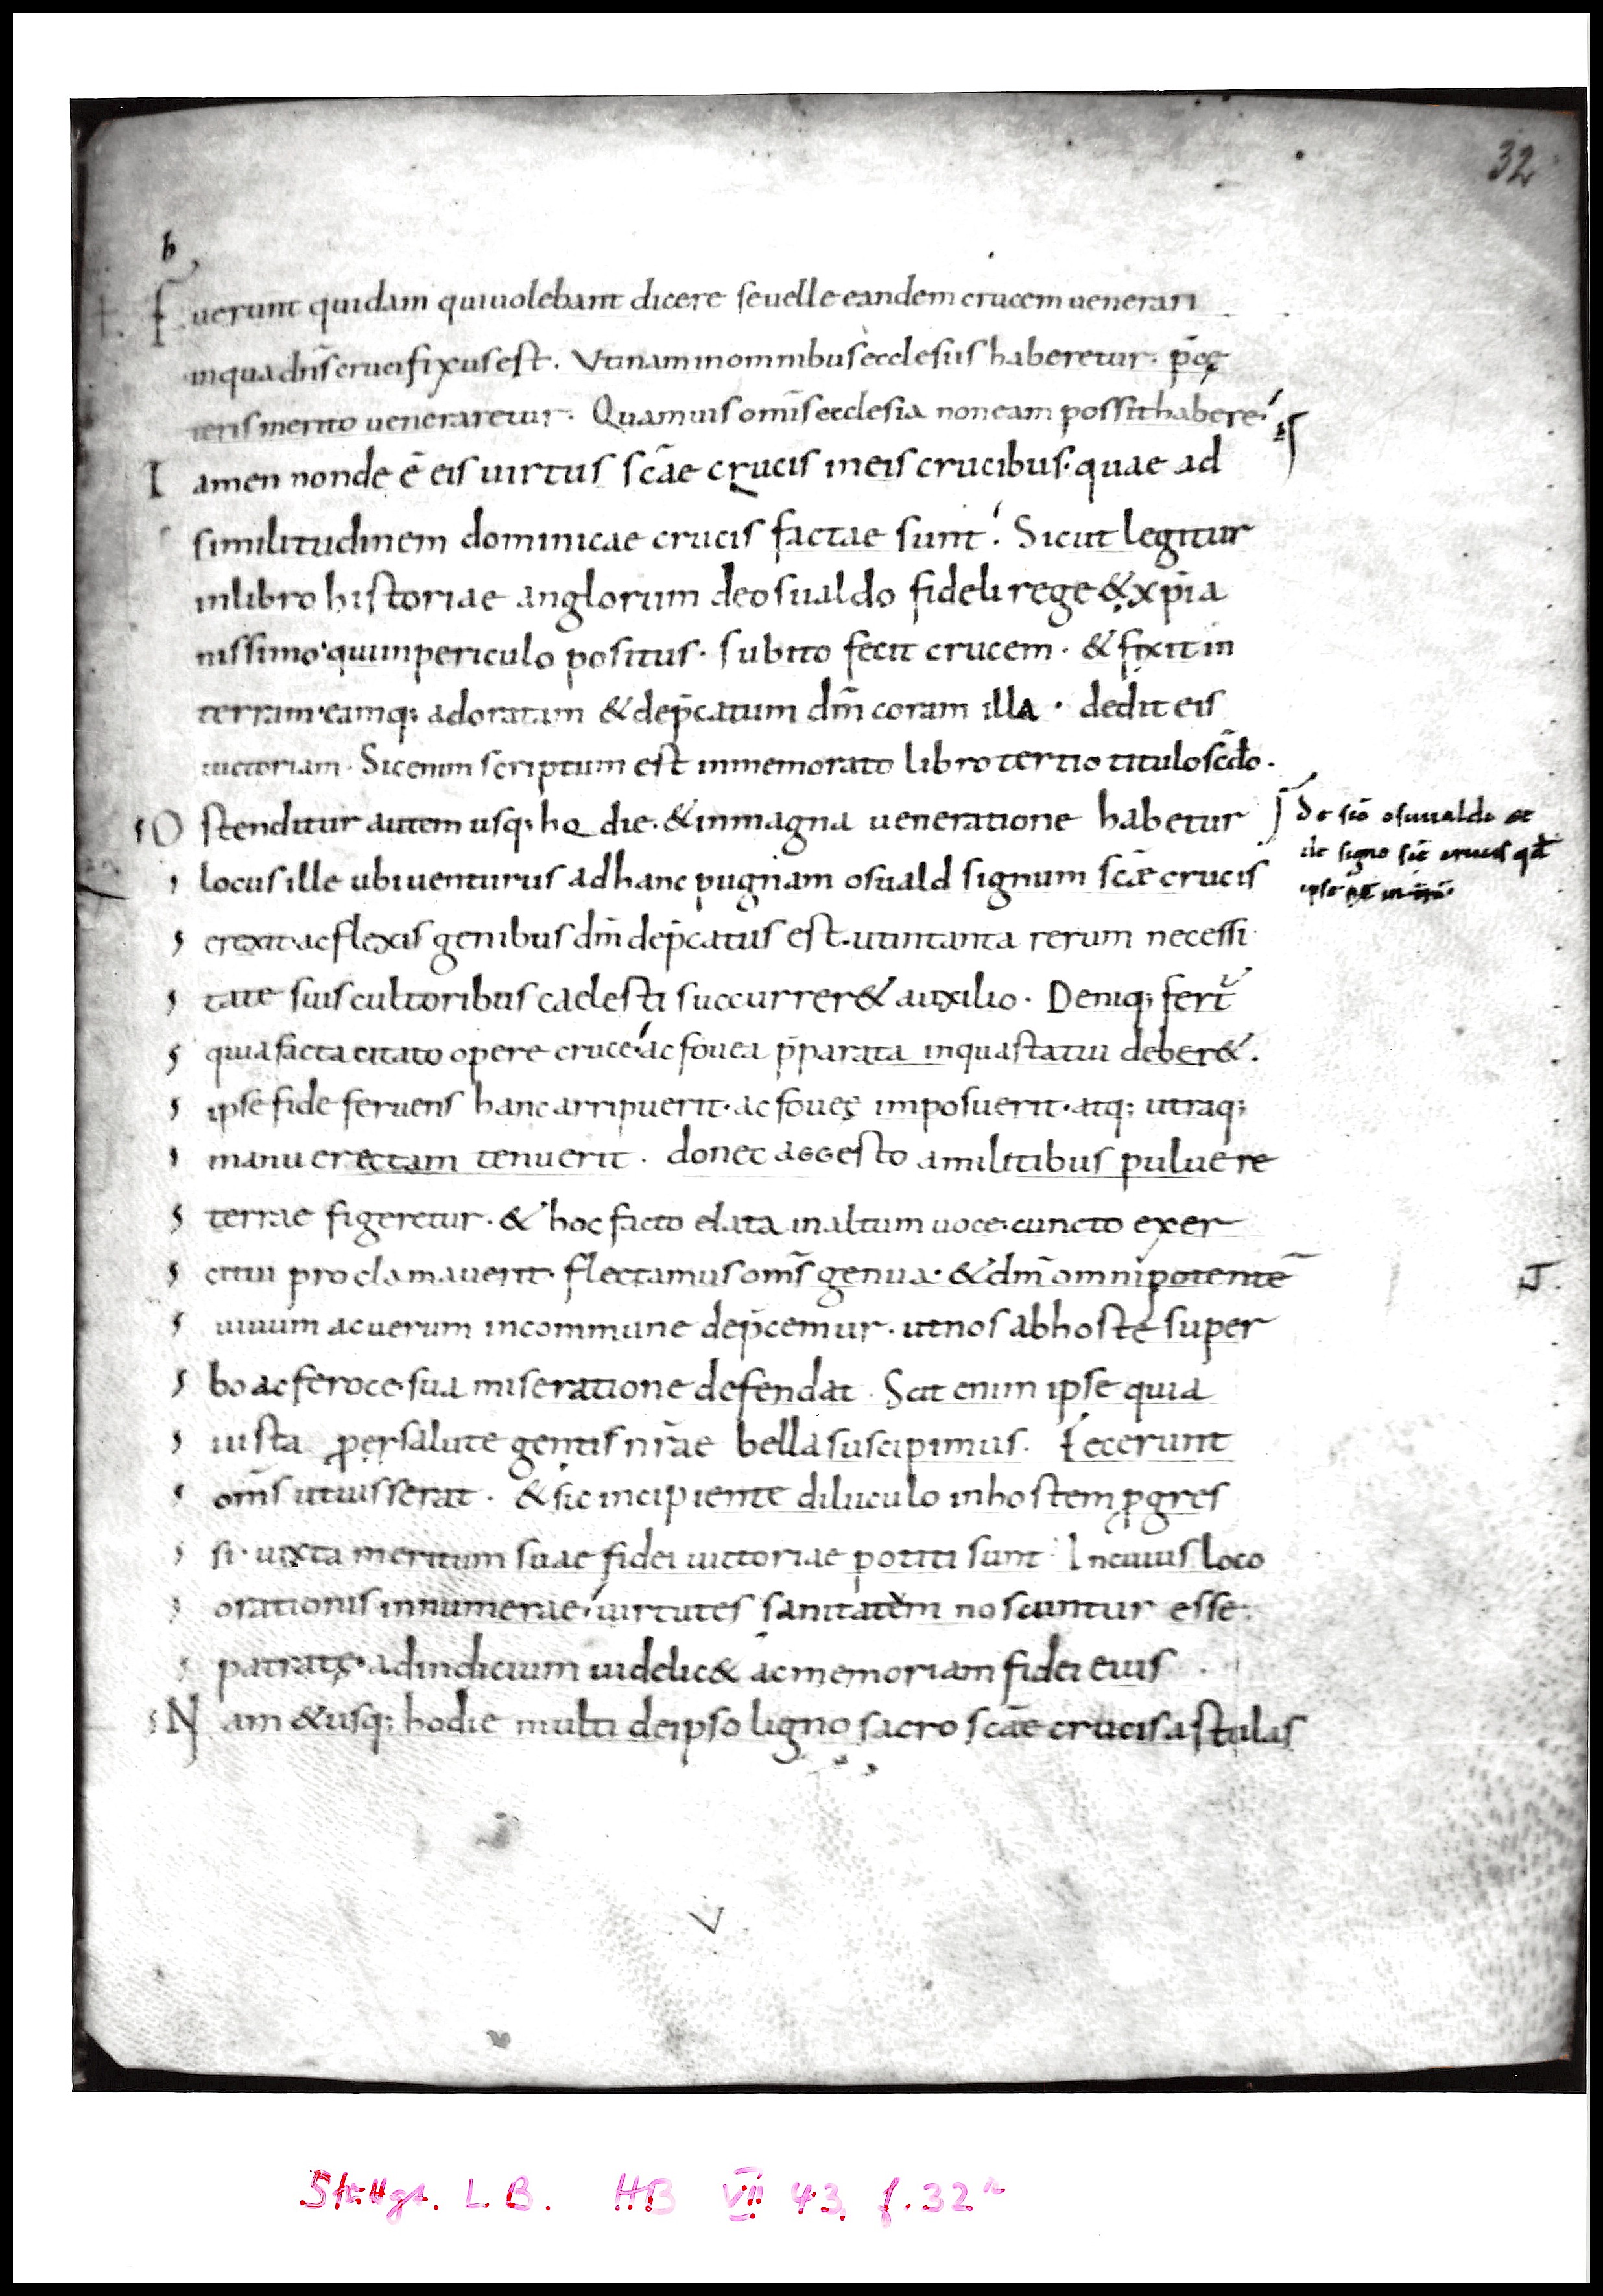 32
b
Fuerunt quidam quiuolebant dicere seuelle eandem crucem uenerari
inqua dn̄s crucifixus est. Vtinam inomnibus ecclesiis haberetur. p̄cę
teris merito ueneraretur. Quamuis om̄s ecclesia non eam possit habere.
Tamen non de ē eis uirtus sc̄ae crucis ineis crucibus. quae ad
similitudinem dominicae crucis factae sunt. Sicut legitur
inlibro historiae anglorum deosualdo fideli rege & xp̄ia
nissimo quiinpericulo positus. subito fecit crucem. & fixit in
terram. eamq; adoratam & dep̄catum dm̄ coram illa. dedit eis
uictoriam. Sicenim scriptum est inmemorato libro tertio titulo sc̄do.
Ostenditur autem usq; ho die. & inmagna ueneratione habetur
De sc̄o osuualdo et
de signo sc̄e crucis qd̄
ipse
locus ille ubi uenturus adhanc pugnam osuald signum sc̄ae crucis
erexit. ac flexis genibus dm̄ dep̄catus est. utintanta rerum necessi
tate suis cultoribus caelesti succurrer& auxilio. Deniq; fert̄
quia facta citato opere cruce. ac fouea p̄parata inqua statui deber&.
ipse fide feruens hanc arripuerit. ac foueę imposuerit. atq; utraq;
manu erectam tenuerit. donec aggesto amilitibus puluere
terrae figeretur. & hoc facto elata inaltum uoce. cuncto exer
citui proclamauerit. flectamus om̄s genua. & dm̄ omnipotentē
uiuum ac uerum incommune dep̄cemur. utnos abhoste super
bo ac feroce. sua miseratione defendat. Scit enim ipse quia
iusta per salute gentis nr̄ae bella suscipimus. Fecerunt
om̄s utiusserat. & sic incipiente diluculo inhostem ꝓgres
si. iuxta meritum suae fidei uictoriae potiti sunt. Incuius loco
orationis innumerae uirtutes sanitatem noscuntur esse
patratę. adindicium uidelic& ac memoriam fidei eius
Nam & usq; hodie multi deipso ligno sacro sc̄ae crucis astulas
Stuttg. L.B. HB VII 43, f. 32r